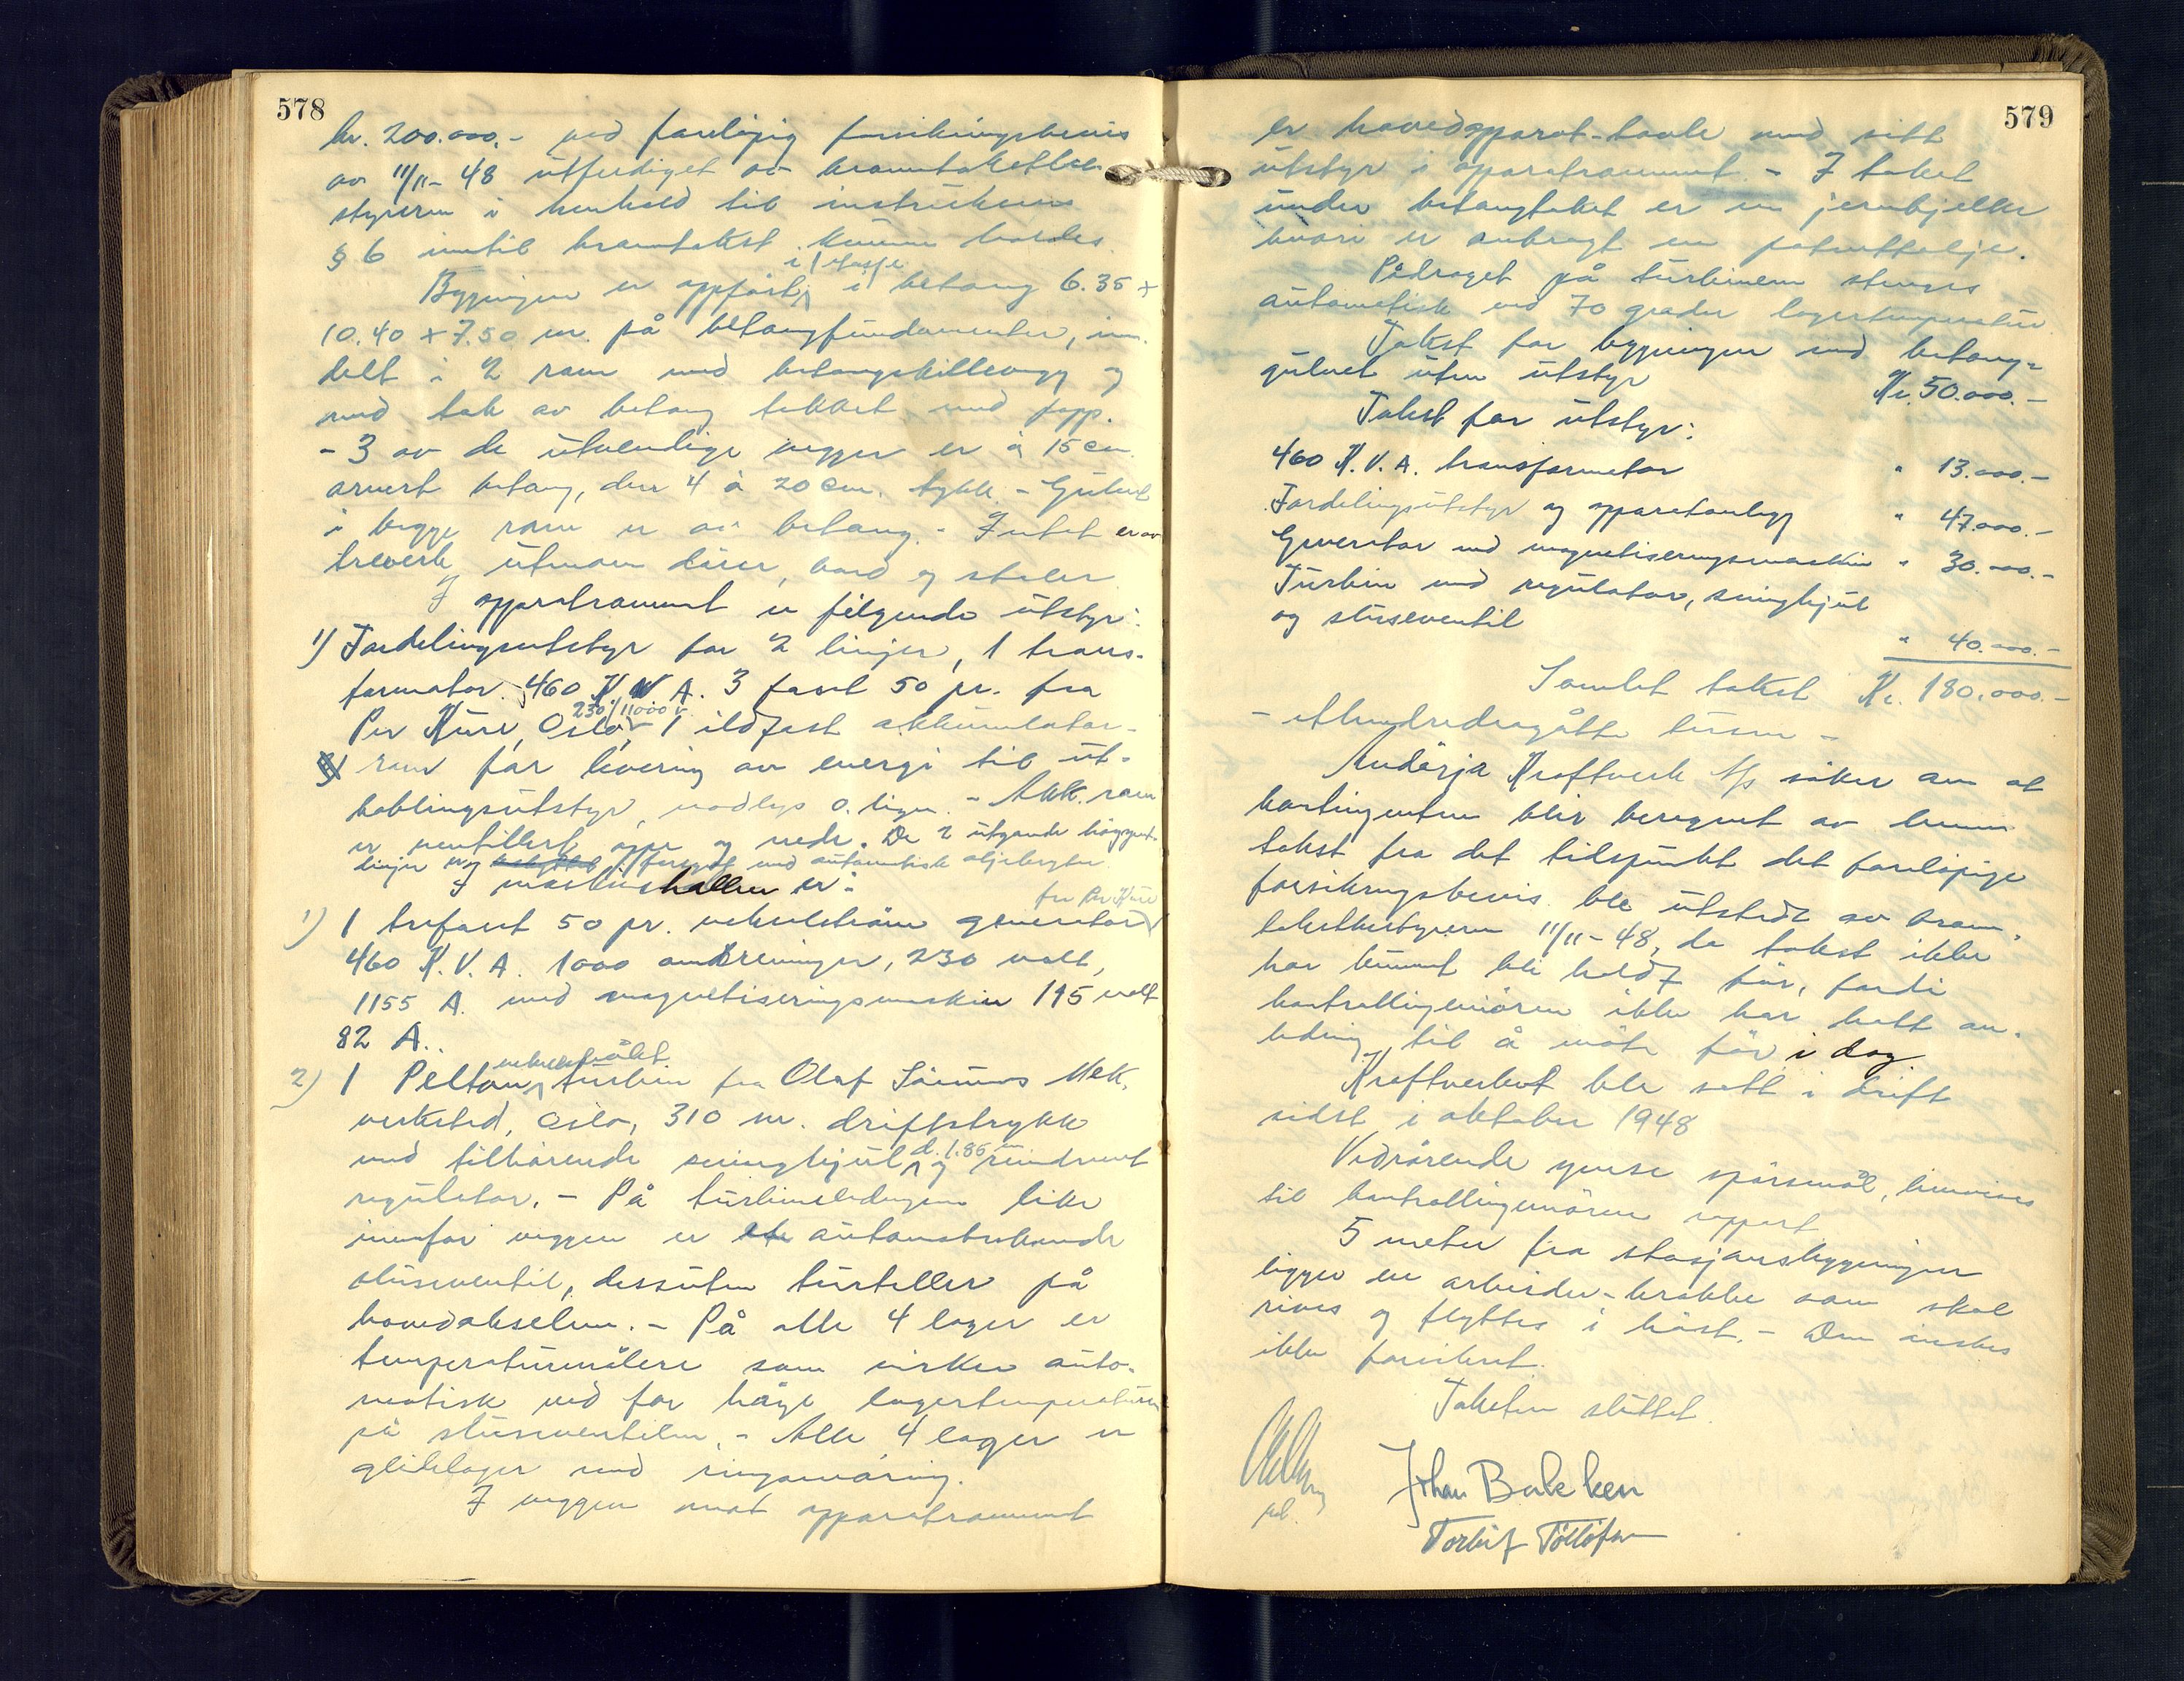 578
kr. 200.000.- ved foreløpig forsikringsbevis
av 11/11-48 utferdiget av branntakstbe-
styreren i henhold til instruksens
§ 6 inntil branntakst kunne holdes.
i 1 etasje
Bygningen er oppført i betong 6.35 x
10.40 x 7.50 m. på betongfundamenter, inn-
delt i 2 rom med betongskillevegg og
med tak av betong tekket med papp.
- 3 av de utvendige vegger er à 15 cm.
armert betong, den 4 à 20 cm. tykk. - Gulvet
i begge rom er av betong. - Intet er av
treverk utenom dører, bord og stoler
I apparatrommet er følgende utstyr:
1) Fordelingsutstyr for 2 linjer, 1 trans-
formator 460 K.V.A. 3 faset 50 pr. fra
230/11000 v
Per Kure, Oslo, - 1 ildfast akkumulator-
rom for levering av energi til ut-
koblingsutstyr, nødlys o. lign. - Akk. rom
er ventillert oppe og nede. De 2 utgående høyspent-
linjer er forsynt med automatisk oljebryter
I maskinhallen er:
fra Per Kure
1) 1 trefaset 50 pr. vekselstrøm generator
460 K.V.A. 1000 omdreininger, 230 volt,
1155 A. med magnetiseringsmaskin 115 volt
82 A.
2) 1 Pelton turbin fra Olaf Sørumos Mek.
verksted, Oslo, 310 m. driftstrykk
d. 1.86 m
med tilhørende svinghjul og
regulator. - På turbinledningen like
innenfor veggen er automatvirkende
sluseventil, dessuten turteller på
hovedakselen. - På alle 4 lager er
temperaturmålere som virker auto-
matisk ved for høye lagertemperaturer
på sluseventilen. - Alle 4 lager er
glidelager med ringsmøring.
I veggen mot apparatrommet
579
er hovedapparat-tavle med sitt
utstyr i apparatrommet. - I taket
under betongtaket er en jernbjelke
hvori er anbragt en patenttalje.
Pådraget på turbinen stenges
automatisk ved 70 grader lagertemperatur
Takst for bygningen med betong-
gulvet uten utstyr Kr. 50.000.-
Takst for utstyr:
460 K.V.A. transformator " 13.000.-
Fordelingsutstyr og apparatanlegg " 47.000.-
Generator med magnetiseringsmaskin " 30.000.-
Turbin med regulator, svinghjul
og sluseventil " 40.000.-
Samlet takst Kr. 180.000.-
- etthundredeogåtti tusen -
Andørja Kraftverk A/s søker om at
kontingenten blir beregnet av denne
takst fra det tidspunkt det foreløpige
forsikringsbevis ble utstedt av brann-
takstbestyreren 11/11-48, da takst ikke
har kunnet bli holdt før, fordi
kontrollingeniøren ikke har hatt an-
ledning til å møte før i dag
Kraftverket ble satt i drift
sidst i oktober 1948
Vedrørende yense spørsmål, henvises
til kontrollingeniørens rapport
5 meter fra stasjonsbygningen
ligger en arbeider-brakke som skal
rives og flyttes i høst. - Den ønskes
ikke forsikret.
Taksten sluttet.
Johan Bakken